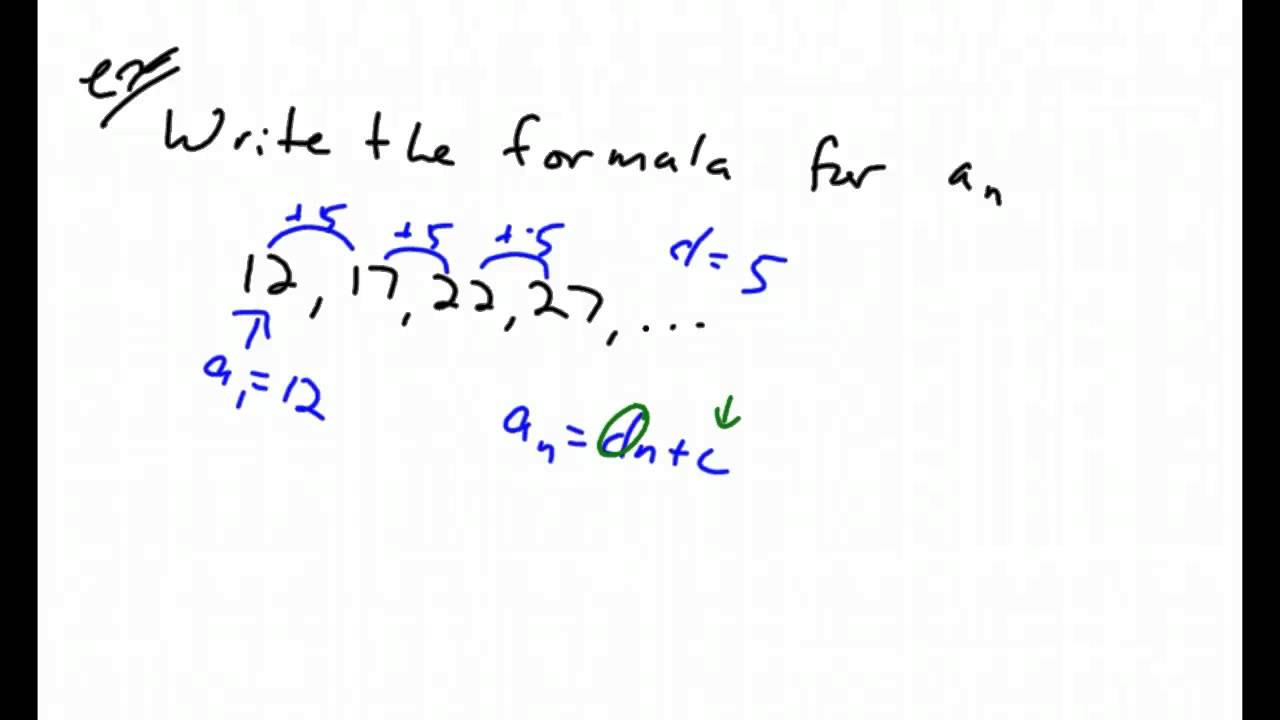 ex
Write the formala for aₙ
+5 +5 +5
12, 17, 22, 27, ... d = 5
a₁ = 12
aₙ = dn + c